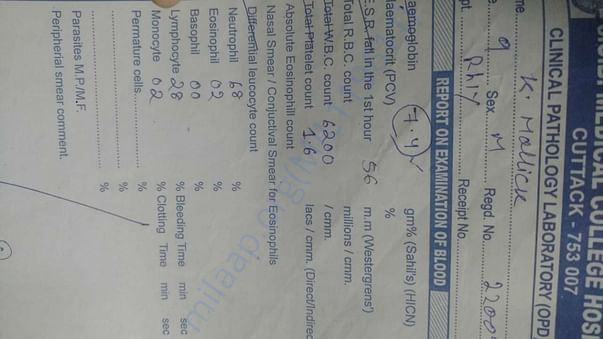 MEDICAL COLLEGE HOSI
CUTTACK - 753 007.
CLINICAL PATHOLOGY LABORATORY (OPD
me K. Mallick
e. 9 Sex. M Regd. No. 2200
pt Receipt No.
REPORT ON EXAMINATION OF BLOOD
aemoglobin 7.4 gm% (Sahil's) (HICN)
aematocrit (PCV) %
E.S.R. fall in the 1st hour 56 m.m (Westergrens')
Total R.B.C. count millions / cmm.
Total W.B.C. count 6200 / cmm.
Total Platelet count 1.6 lacs / cmm. (Direct/Indirec
Absolute Eosinophill count
Nasal Smear / Conjuctival Smear for Eosinophils
Differential leucocyte count
Neutrophil 68 %
Eosinophil 02 %
Basophil 00 %
Lymphocyte 28 % Bleeding Time min sec
Monocyte 02 % Clotting Time min sec
Permature cells %
%
Parasites M.P./M.F. %
Peripherial smear comment.
milaap.org